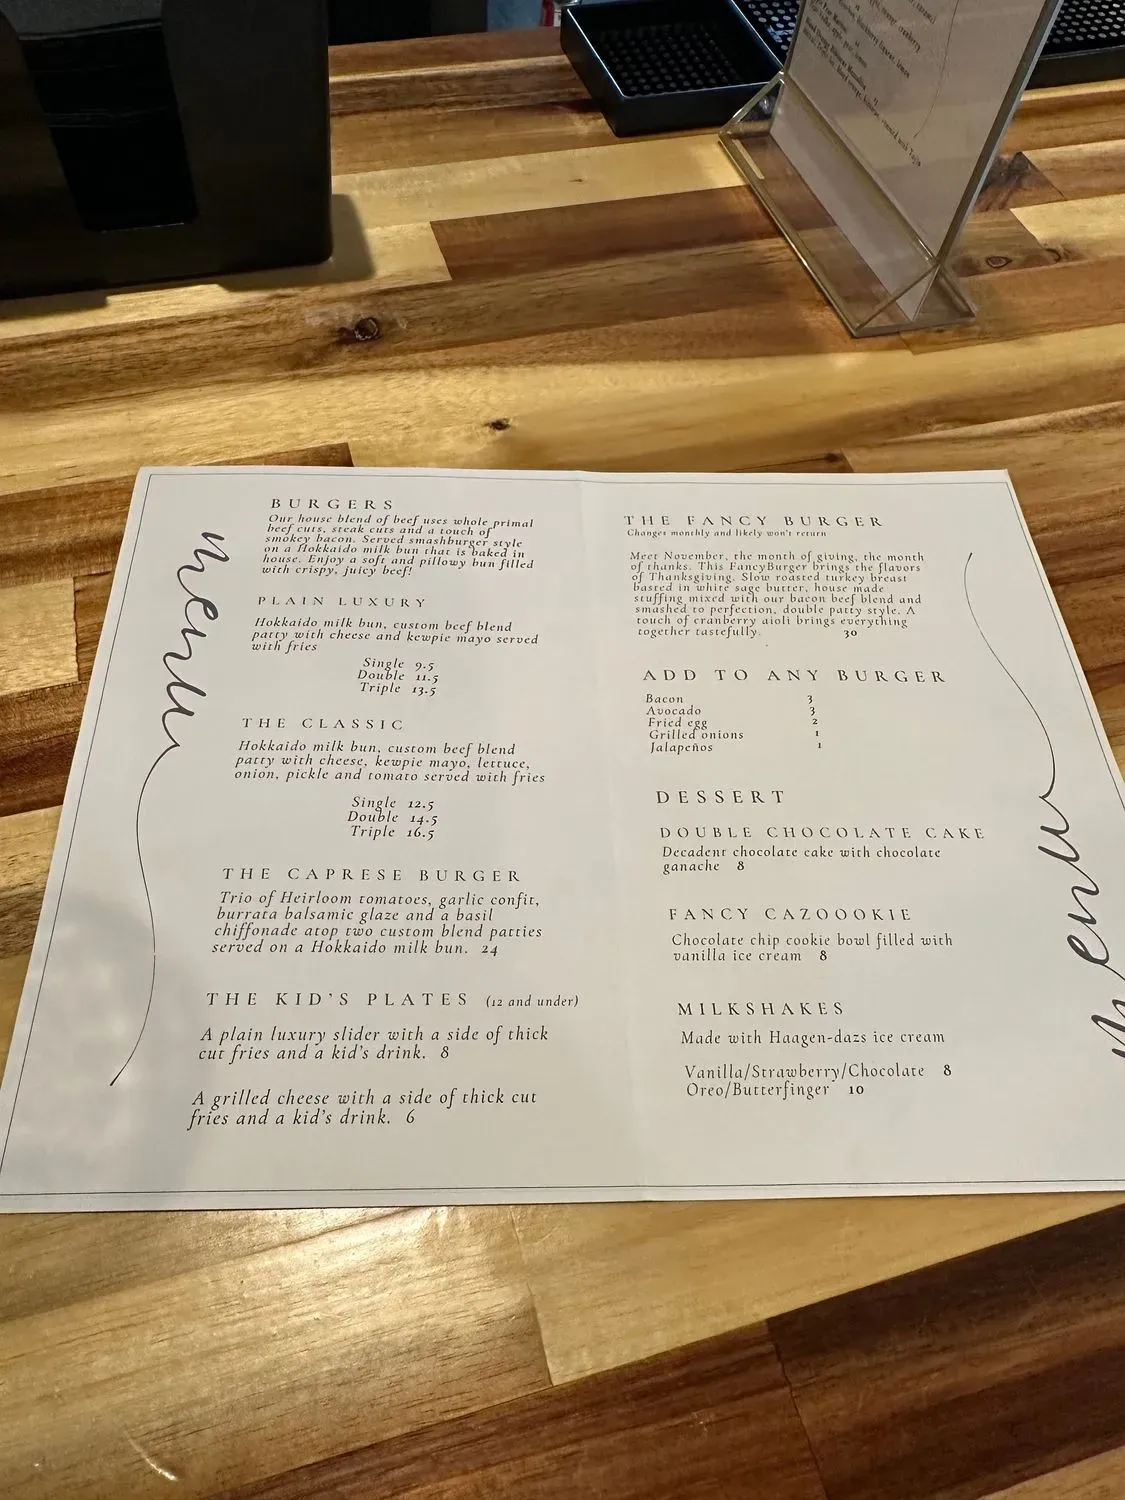 menu
BURGERS
Our house blend of beef uses whole primal
beef cuts, steak cuts and a touch of
smokey bacon. Served smashburger style
on a Hokkaido milk bun that is baked in
house. Enjoy a soft and pillowy bun filled
with crispy, juicy beef!
PLAIN LUXURY
Hokkaido milk bun, custom beef blend
patty with cheese and kewpie mayo served
with fries
Single 9.5
Double 11.5
Triple 13.5
THE CLASSIC
Hokkaido milk bun, custom beef blend
patty with cheese, kewpie mayo, lettuce,
onion, pickle and tomato served with fries
Single 12.5
Double 14.5
Triple 16.5
THE CAPRESE BURGER
Trio of Heirloom tomatoes, garlic confit,
burrata balsamic glaze and a basil
chiffonade atop two custom blend patties
served on a Hokkaido milk bun. 24
THE KID'S PLATES (12 and under)
A plain luxury slider with a side of thick
cut fries and a kid's drink. 8
A grilled cheese with a side of thick cut
fries and a kid's drink. 6
THE FANCY BURGER
Changes monthly and likely won't return
Meet November, the month of giving, the month
of thanks. This FancyBurger brings the flavors
of Thanksgiving. Slow roasted turkey breast
basted in white sage butter, house made
stuffing mixed with our bacon beef blend and
smashed to perfection, double patty style. A
touch of cranberry aioli brings everything
together tastefully. 30
ADD TO ANY BURGER
Bacon 3
Avocado 3
Fried egg 2
Grilled onions 1
Jalapeños 1
DESSERT
DOUBLE CHOCOLATE CAKE
Decadent chocolate cake with chocolate
ganache 8
FANCY CAZOOOKIE
Chocolate chip cookie bowl filled with
vanilla ice cream 8
MILKSHAKES
Made with Haagen-dazs ice cream
Vanilla/Strawberry/Chocolate 8
Oreo/Butterfinger 10
menu